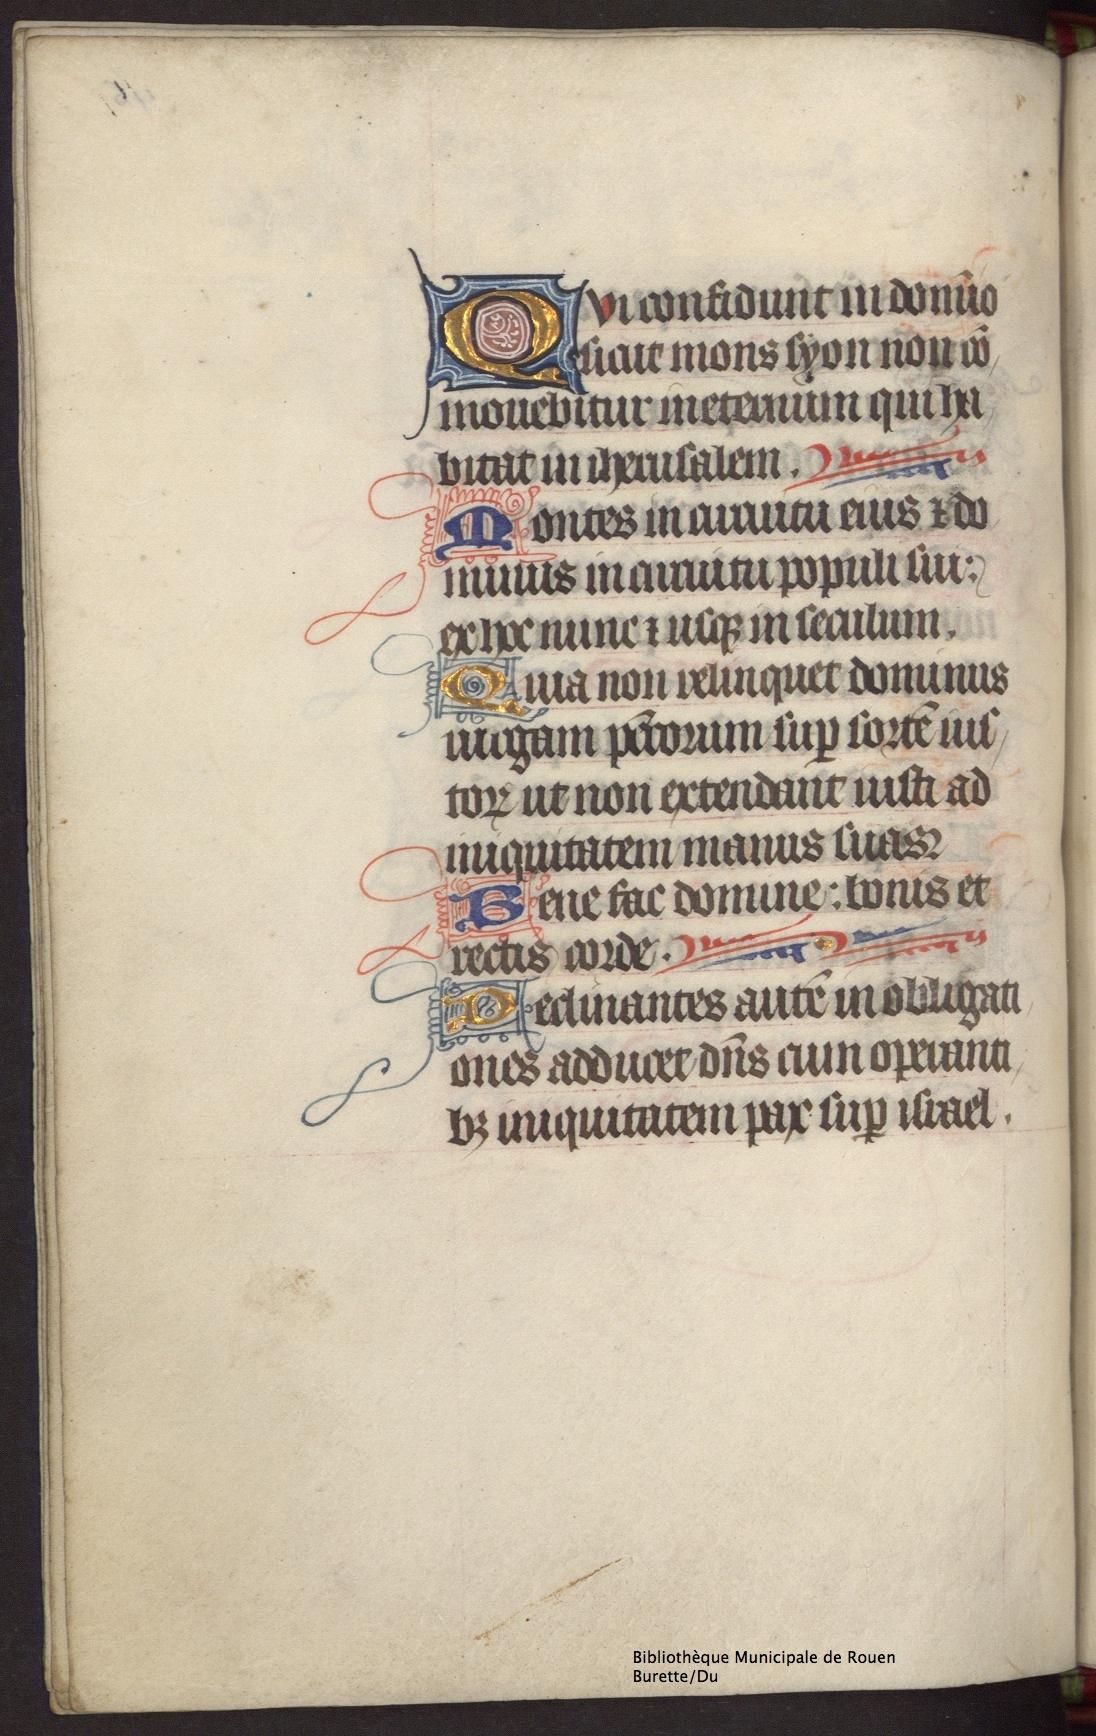 QVi confidunt in domīo
sicut mons syon non cō
mouebitur in eternum qui ha
bitat in iherusalem.
Montes in circuitu eius ⁊ do
minus in circuitu populi sui:
ex hoc nunc ⁊ usqꝫ in seculum.
Quia non relinquet dominus
uirgam pc̄torum suꝑ sortē ius
toꝝ ut non extendant iusti ad
iniquitatem manus suas
Bene fac domine: bonis et
rectis corde.
Declinantes autē in obligati
ones adducet dn̄s cum operanti
bꝫ iniquitatem pax suꝑ israel.
Bibliothèque Municipale de Rouen
Burette/Du